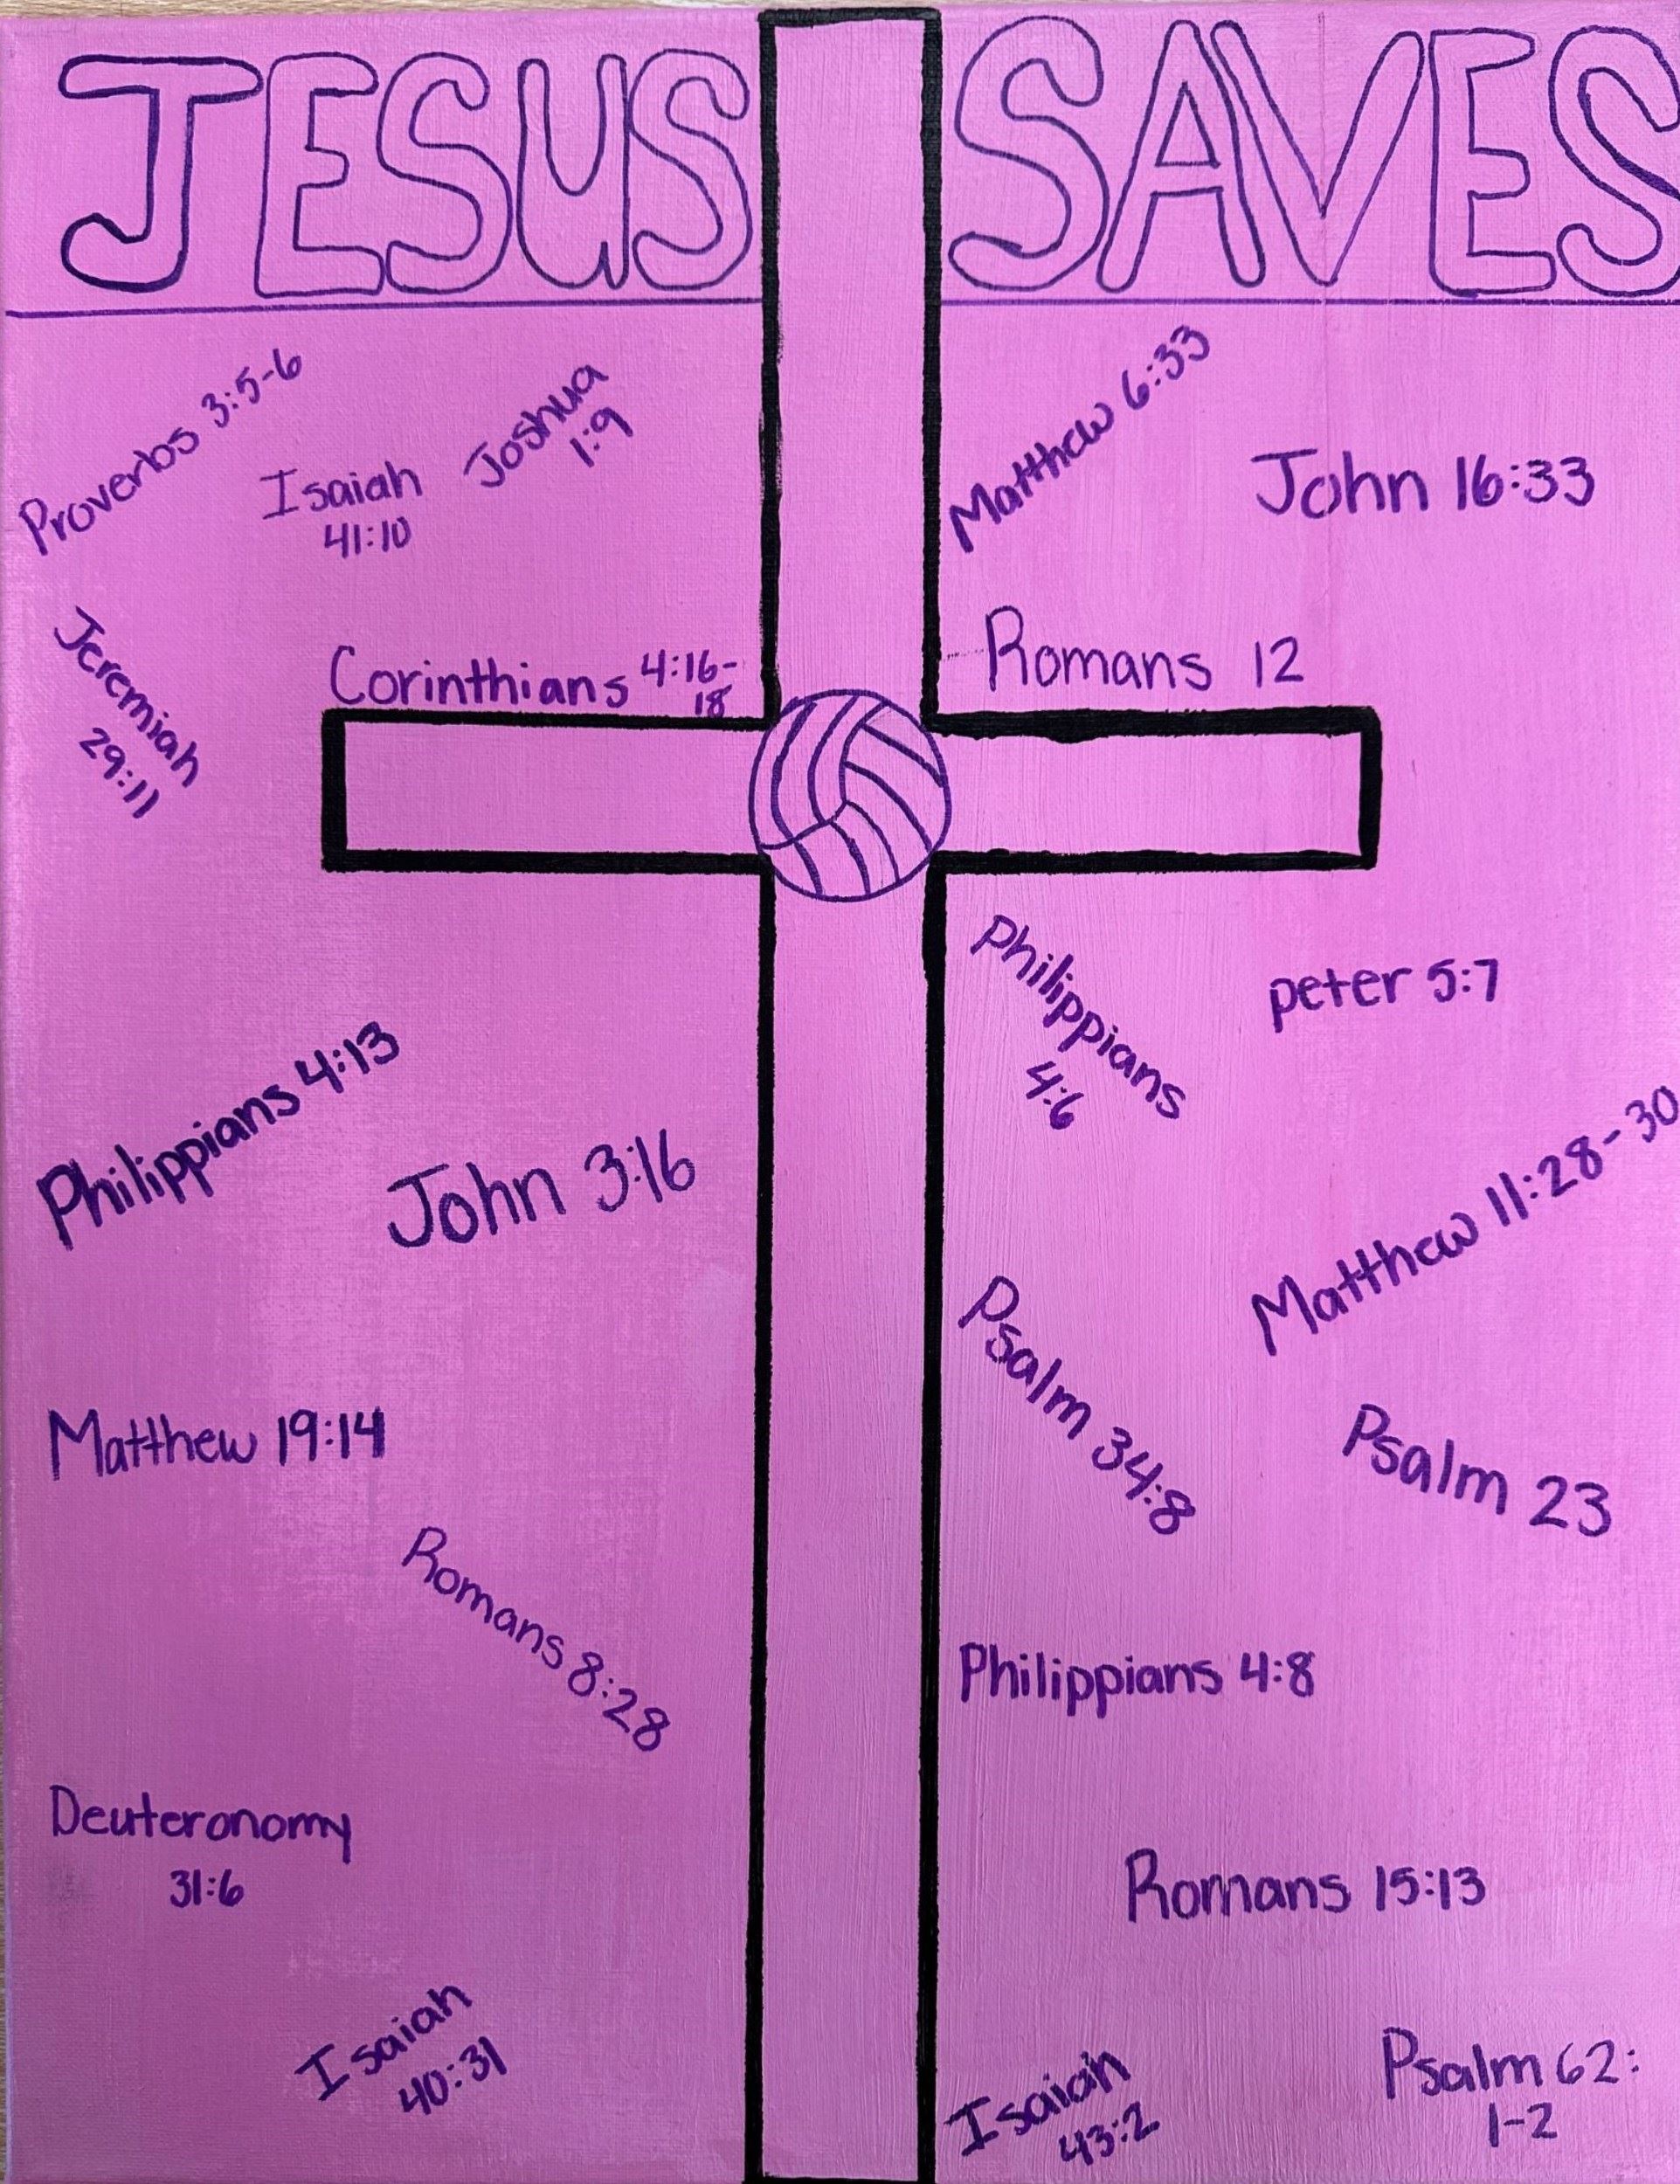 JESUS SAVES
Proverbs 3:5-6
Isaiah
41:10
Joshua
1:9
Jeremiah
29:11
Corinthians 4:16-
18
Philippians 4:13
John 3:16
Matthew 19:14
Romans 8:28
Deuteronomy
31:6
Isaiah
40:31
Matthew 6:33
John 16:33
Romans 12
Philippians
4:6
peter 5:7
Matthew 11:28-30
Psalm 34:8
Psalm 23
Philippians 4:8
Romans 15:13
Isaiah
43:2
Psalm 62:
1-2